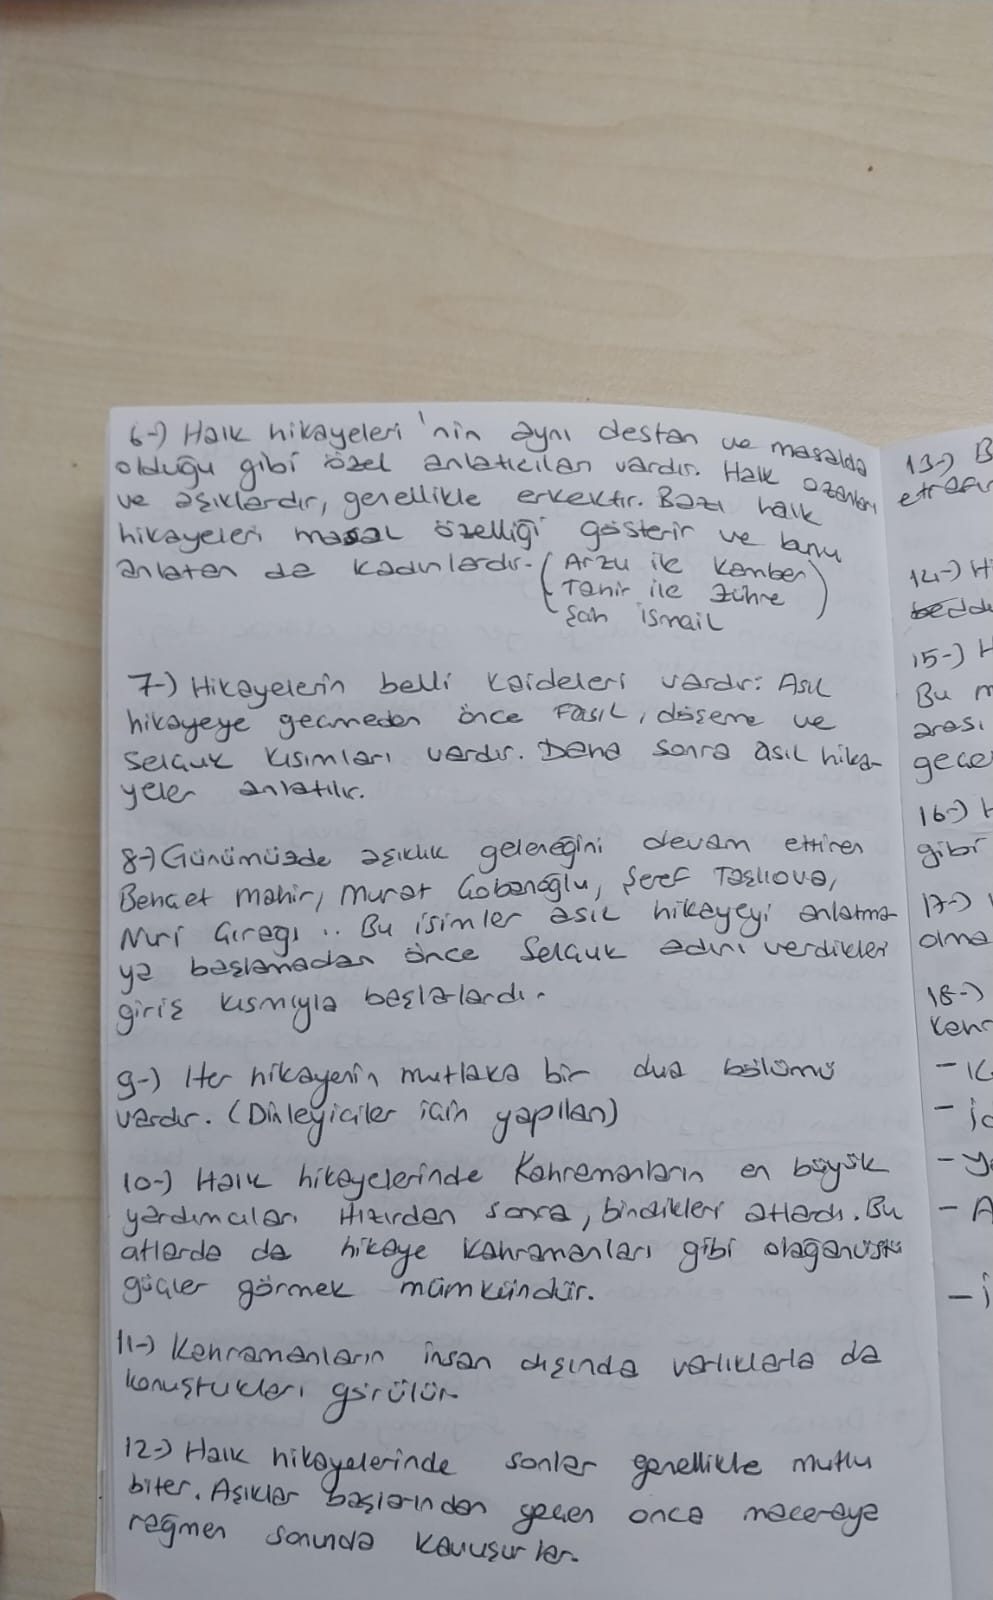 6-) Halk hikayeleri'nin aynı destan ve masalda
olduğu gibi özel anlatıcıları vardır. Halk ozanları
ve aşıklardır, genellikle erkektir. Bazı halk
hikayeleri masal özelliği gösterir ve bunu
anlatan da kadınlardır. (Arzu ile Kamber
Tahir ile Zühre
Şah İsmail)
7-) Hikayelerin belli kaideleri vardır: Asıl
hikayeye geçmeden önce Fasıl, döşeme ve
Selçuk kısımları vardır. Daha sonra asıl hika-
yeler anlatılır.
8-) Günümüzde aşıklık geleneğini devam ettiren
Behçet Mahir, Murat Çobanoğlu, Şeref Taşlıova,
Nuri Çırağı .. Bu isimler asıl hikayeyi anlatma-
ya başlamadan önce Selçuk adını verdikler
giriş kısmıyla başlarlardı.
9-) Her hikayenin mutlaka bir dua bölümü
vardır. (Dinleyiciler için yapılan)
10-) Halk hikayelerinde Kahramanların en büyük
yardımcıları Hızırdan sonra, bindikleri atlardı. Bu
atlarda da hikaye kahramanları gibi olağanüstü
güçler görmek mümkündür.
11-) Kahramanların insan dışında varlıklarla da
konuştukları görülür.
12-) Halk hikayelerinde sonlar genellikle mutlu
biter. Aşıklar başlarından geçen onca maceraya
rağmen sonunda kavuşurlar.
13-) B
14-) H
15-) H
Bu m
arası
16-) H
gibi
17-)
olma
18-)